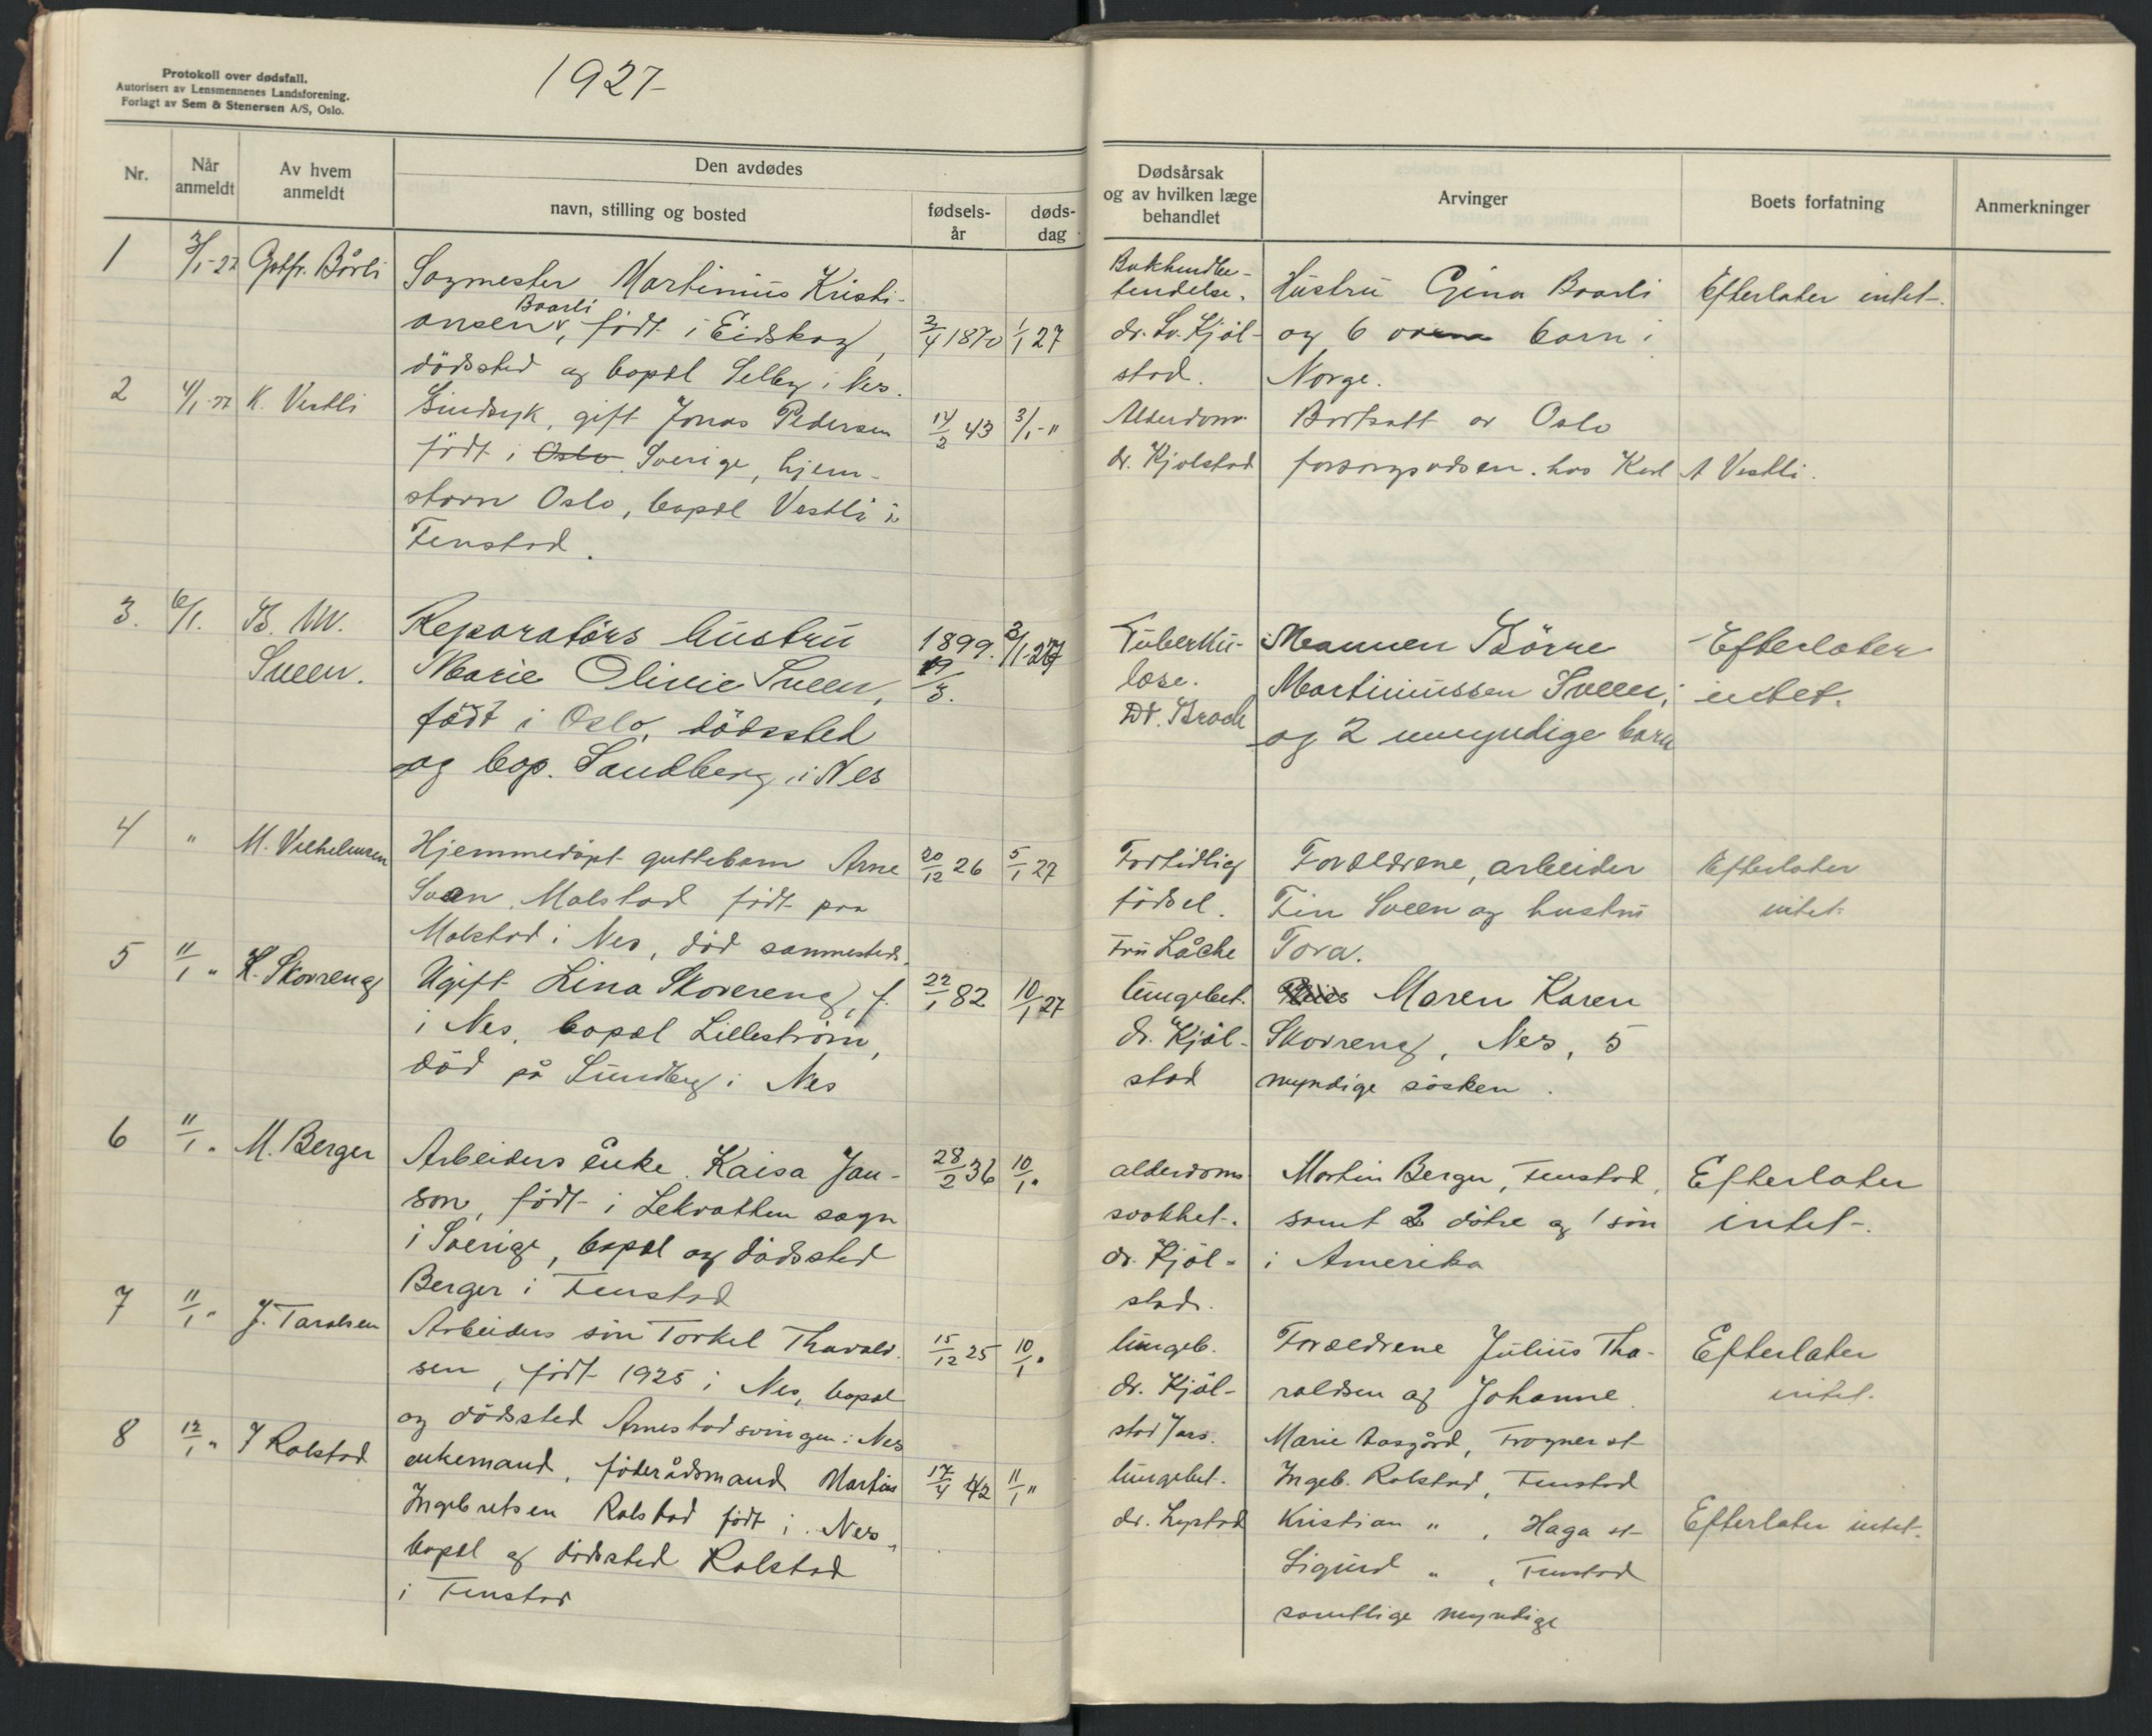 1927
Protokoll over dødsfall.
Autorisert av Lensmennenes Landsforening.
Forlagt av Sem & Stenersen A/S, Oslo.
Nr.
Når anmeldt
Av hvem anmeldt
Den avdødes
navn, stilling og bosted
fødsels-år
døds-dag
Dødsårsak og av hvilken læge behandlet
Arvinger
Boets forfatning
Anmerkninger
1 3/1-27 Gotfr. Bårli
Sagmester Martinius Kristi-
Baarli
ansen, født i Eidskog, 2/4 1870 1/1 27
dödssted og bopæl Selby i Nes.
dr. Sv. Kjöl-
stad.
Hustru Gina Baarli
og 6 barn i
Norge.
Efterlater intet.
2 4/1-27 K. Vestli
Sindsyk, gift Jonas Pedersen 14/2 43 3/1-"
født i Oslo Sverige, hjem-
stavn Oslo, bopæl Vestli i
Fenstad.
Alderdom
dr. Kjølstad
Bortsatt av Oslo
forsorgsvæsen hos Karl A Vestli.
3. 6/1. B. M.
Sveen.
Reparatörs hustru 1899. 3/1-27
Marie Olivie Sveen, 19/3.
født i Oslo, dödssted
og bop. Sandberg i Nes
Tuberku-
lose.
Dr. Broch
Mannen Börre
Martiniussen Sveen,
og 2 umyndige barn
Efterlater
intet.
4 " M. Vilhelmsen
Hjemmedöpt guttebarn Arne 20/12 26 5/1 27
Sveen, Malstad født paa
Malstad i Nes, död sammesteds.
Fortidlig
födsel.
Fru Låche
Forældrene, arbeider
Fin Sveen og hustru
Tora.
Efterlater
intet.
5 11/1 " H. Skovreng
Ugift Lina Skovereng, f. 22/1 82 10/1 27
i Nes, bopæl Lilleström,
död på Sundby i Nes
lungebet.
dr. Kjöl-
stad
Maren Karen
Skovreng, Nes, 5
myndige sösken.
6 11/1 " M. Berger
Arbeiders enke Kaisa Jan- 28/2 36 10/1 "
son, født i Lekvatten sogn
i Sverige, bopæl og dödssted
Berger i Fenstad
alderdoms
svakhet.
dr. Kjöl-
stad.
Martin Berger, Fenstad,
samt 2 dötre og 1 sön
i Amerika
Efterlater
intet.
7 11/1 " J. Taralsen
Arbeiders sön Torkel Tharald- 15/12 25 10/1 "
sen, født 1925 i Nes, bopæl
og dödssted Arnestadsvingen i Nes
lungeb.
dr. Kjöl-
stad
Forældrene Julius Tha-
raldsen og Johanne
Efterlater
intet.
8 12/1 " J Rolstad
enkemand, föderådsmand Martin 17/4 42 11/1 "
Ingebretsen Rolstad født i Nes,
bopæl og dödssted Rolstad
i Fenstad
lungebet.
dr. Lystad
Marie Aasgård, Frogner st
Ingeb. Rolstad, Fenstad
Kristian " , Haga st
Sigurd " , Fenstad
samtlige myndige
Efterlater intet.